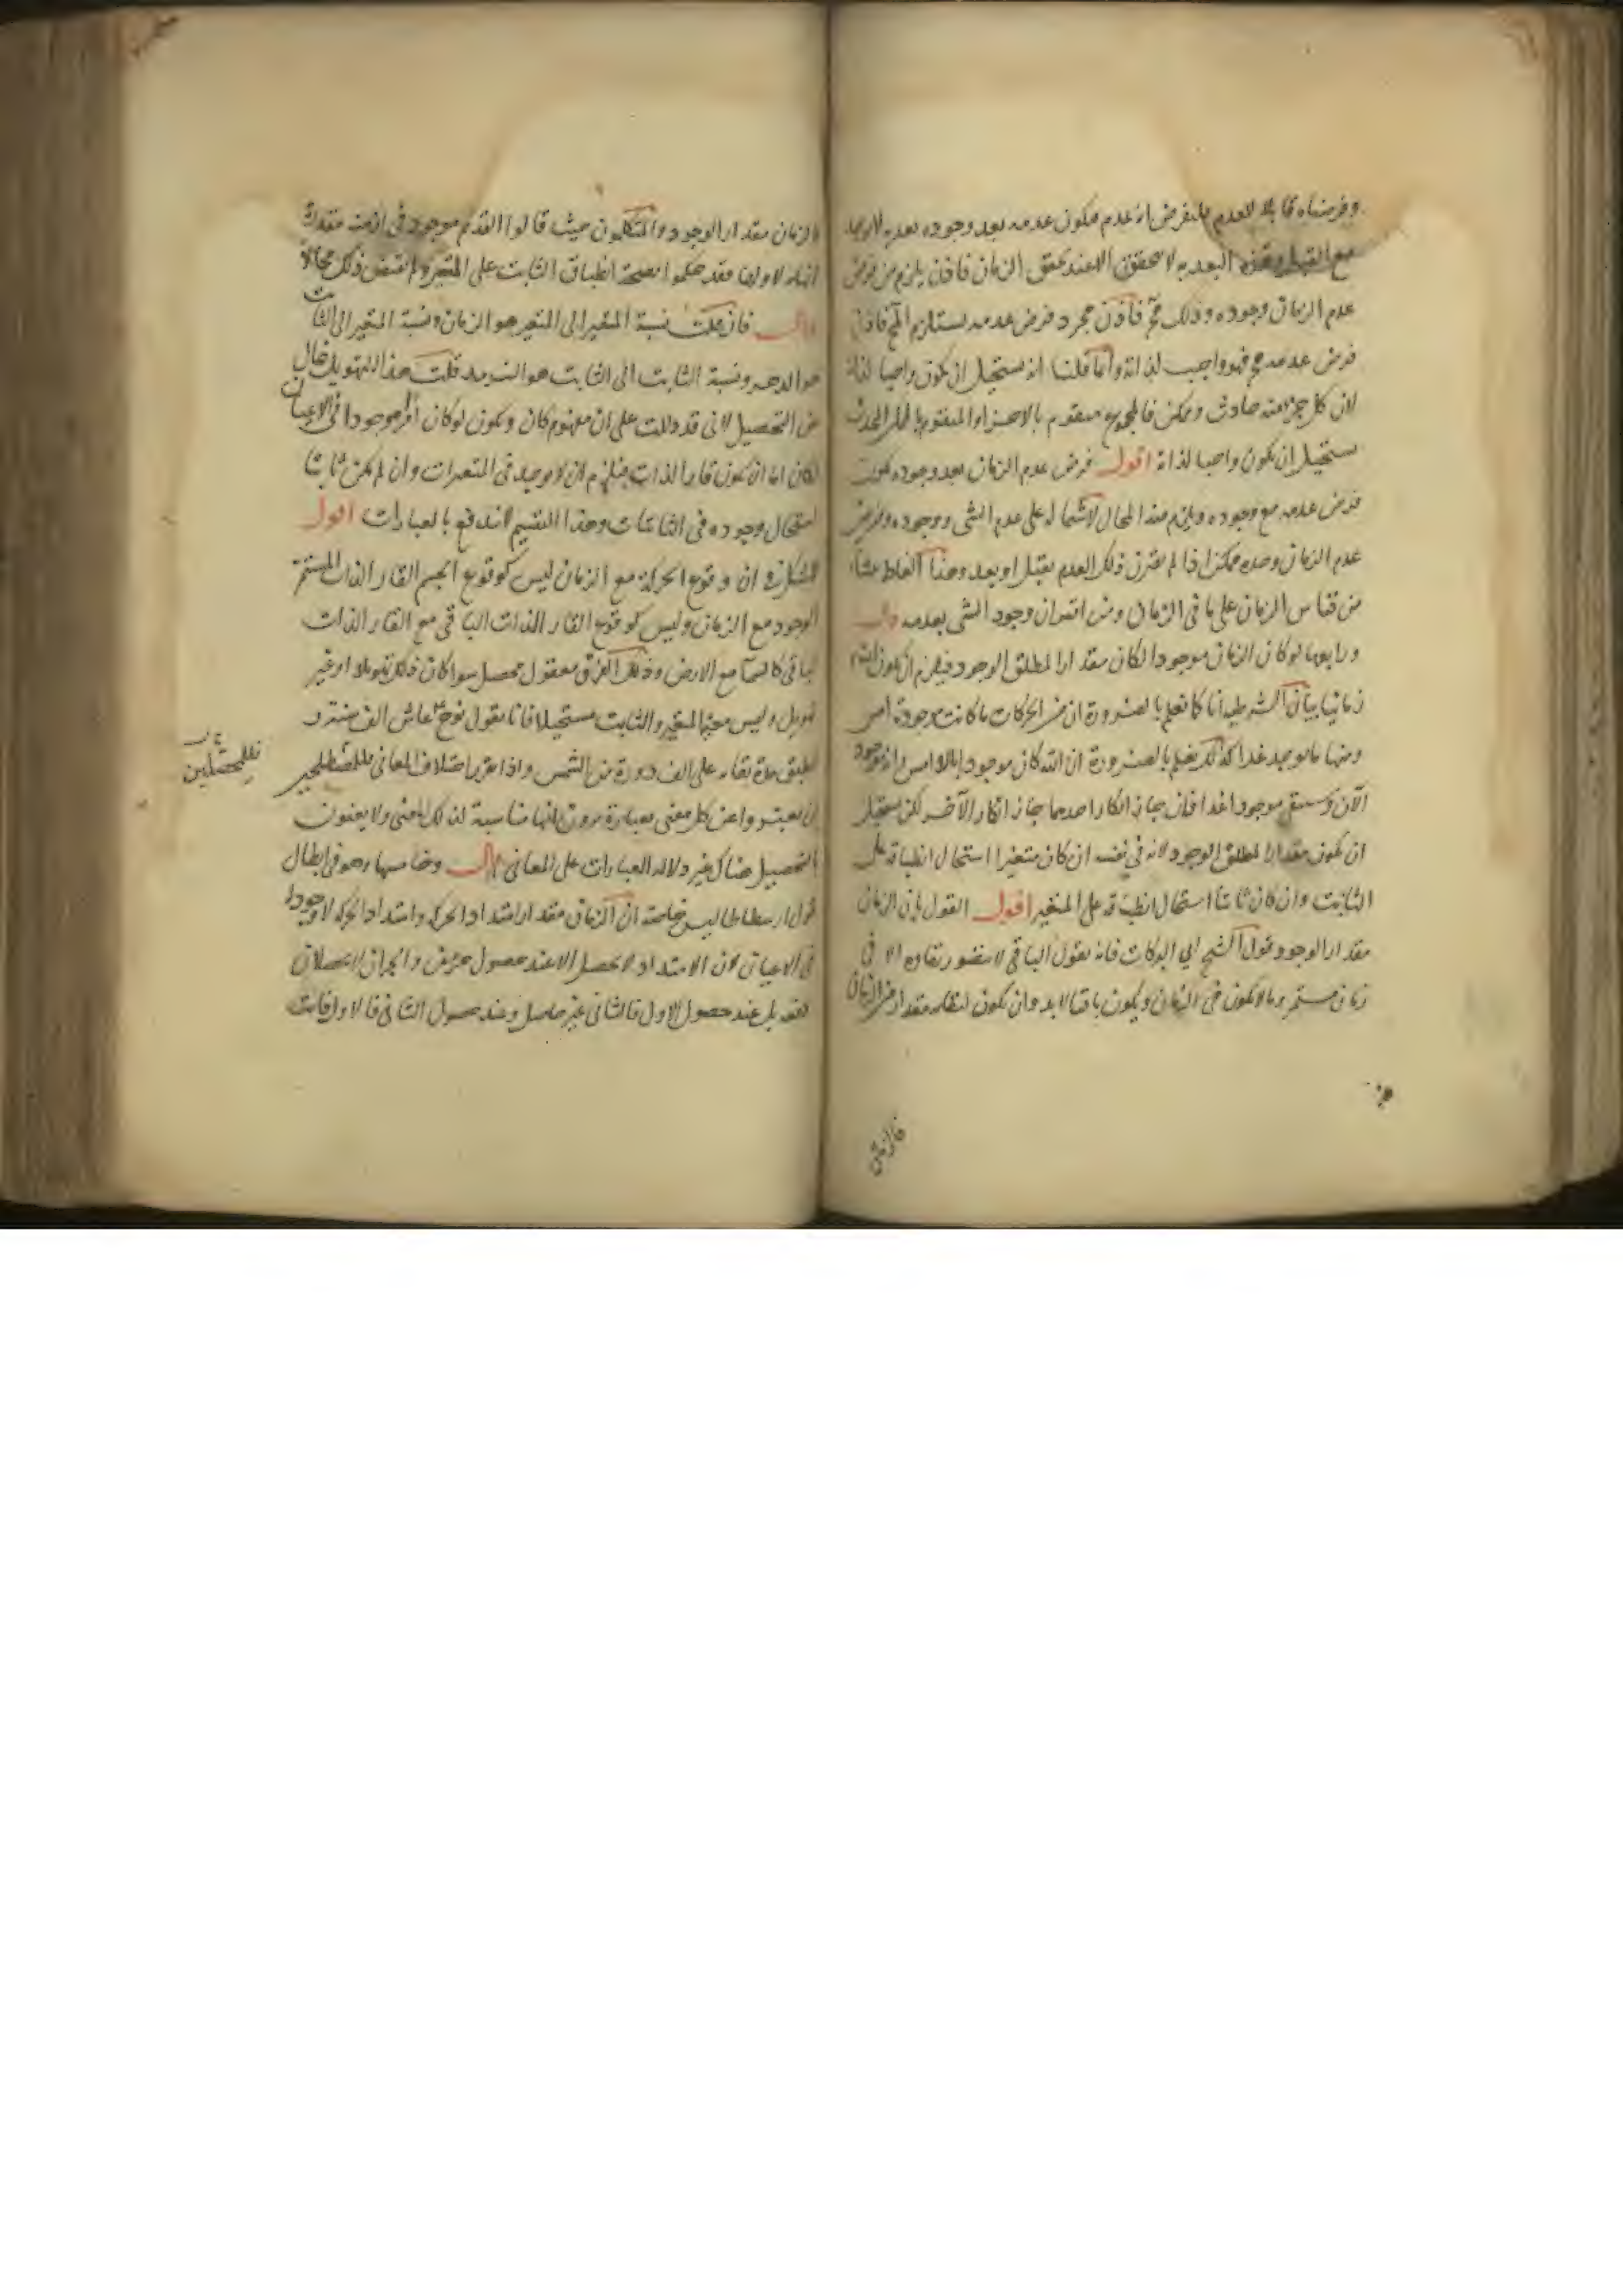 وفرضناه قابلا للعدم فلنفرض انه عدم فيكون عدمه بعد وجوده بعديه لا توجد
مع القبل وهذه البعديه لا تتحقق الا عند تحقق الزمان فاذن يلزم من فرض
عدم الزمان وجوده وذلك مح فاذن مجرد فرض عدمه يستلزم المح فاذن
فرض عدمه مح فهو واجب لذاته وانما قلنا انه يستحيل ان يكون واجبا لذاته
لان كل جزء منه حادث وممكن فالمجموع متقوم بالاجزاء والمتقوم بالممكن المحدث
يستحيل ان يكون واجبا لذاته اقول فرض عدم الزمان بعد وجوده يكون
فرض عدمه مع وجوده ويلزم منه المحال لاشتماله على عدم الشى ووجوده وفرض
عدم الزمان وحده ممكن اذا لم يقترن ذلك العدم بقبل او بعد وهذا الغلط نشأ
من قياس الزمان على باقى الزمان ومن اقتران وجود الشى بعدمه قال
ورابعها لو كان الزمان موجودا لكان مقدارا لمطلق الوجود فيلزم ان يكون الله
زمانيا بيان الشرطيه انا كما نعلم بالضرورة ان من الحركات ما كانت موجودة امس
ومنها ما يوجد غدا كذلك يعلم بالضرورة ان الله كان موجودا بالامس وانه موجود
الآن وسيبقى موجودا غدا فان جاز انكار احدهما جاز انكار الآخر لكن يستحيل
ان يكون مقدارا لمطلق الوجود لانه في نفسه ان كان متغيرا استحال انطباقه على
الثابت وان كان ثابتا استحال انطباقه على المتغير اقول القول بان الزمان
مقدار الوجود قول الشيخ ابي البركات فانه يقول الباقى لا يتصور بقاوه الا فى
زمان مستمر وما لا يكون فى الزمان ويكون باقيا لا بد وان يكون لبقائه مقدار من الزمان
فالزمان مقدار الوجود والمتكلمون حيث قالوا القديم موجود فى ازمنه مقدرة
لا نهاية لاولها فقد حكموا بصحة انطباق الثابت على المتغير ولم يقتض ذلك محالا
قال فان قلت نسبة المتغير الى المتغير هو الزمان ونسبة المتغير الى الثابت
هو الدهر ونسبة الثابت الى الثابت هو السرمد قلت هذا التهويل خال
عن التحصيل لانى قد دللت على ان مفهوم كان ويكون لو كان امرا موجودا فى الاعيان
لكان اما ان يكون قار الذات فيلزم ان لا يوجد فى المتغيرات وان لم يكن ثابتا
استحال وجوده فى الثابتات وهذا التقسيم لا يندفع بالعبارات اقول
لا شك فى ان وقوع الحركة مع الزمان ليس كوقوع الجسم القار الذات المستمر
الوجود مع الزمان وليس كوقوع القار الذات الباقى مع القار الذات
الباقى كالسما مع الارض وذلك الفرق معقول محصل سوا كان ذلك تهويلا او غير
تهويل وليس معية المتغير والثابت مستحيلا فانا نقول نوح عاش الف سنة و
انطبق مدة بقائه على الف دورة من الشمس واذا تقرر اختلاف المعانى فللمصطلحين
ان يعبروا عن كل معنى بعبارة يرون انها مناسبة لذلك المعنى ولا يعنون
بالتحصيل هناك غير دلالة العبارات على المعانى قال وخامسها وهو فى ابطال
قول ارسطاطاليس خاصة ان الزمان مقدار امتداد الحركه وامتداد الحركه لا وجود له
فى الاعيان لان الامتداد لا يحصل الا عند حصول جزئين والجزان لا يحصلان
دفعة بل عند حصول الاول فالثانى غير حاصل وعند حصول الثانى فالاول فائت
فللمحصلين
فالزمان